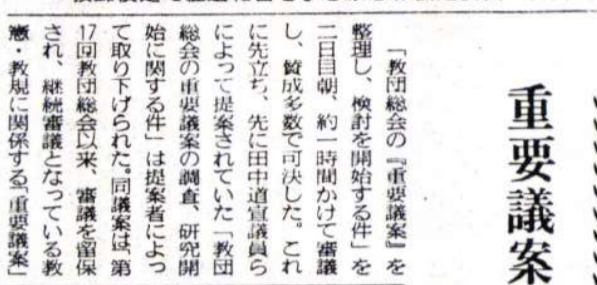 重要議案
「教団総会の『重要議案』を
整理し、検討を開始する件」を
二日目朝、約一時間かけて審議
し、賛成多数で可決した。これ
に先立ち、先に田中道宣議員ら
によって提案されていた「教団
総会の重要議案の調査、研究開
始に関する件」は提案者によっ
て取り下げられた。同議案は、「第
17回教団総会以来、審議を留保
され、継続審議となっている教
憲・教規に関係する「重要議案」